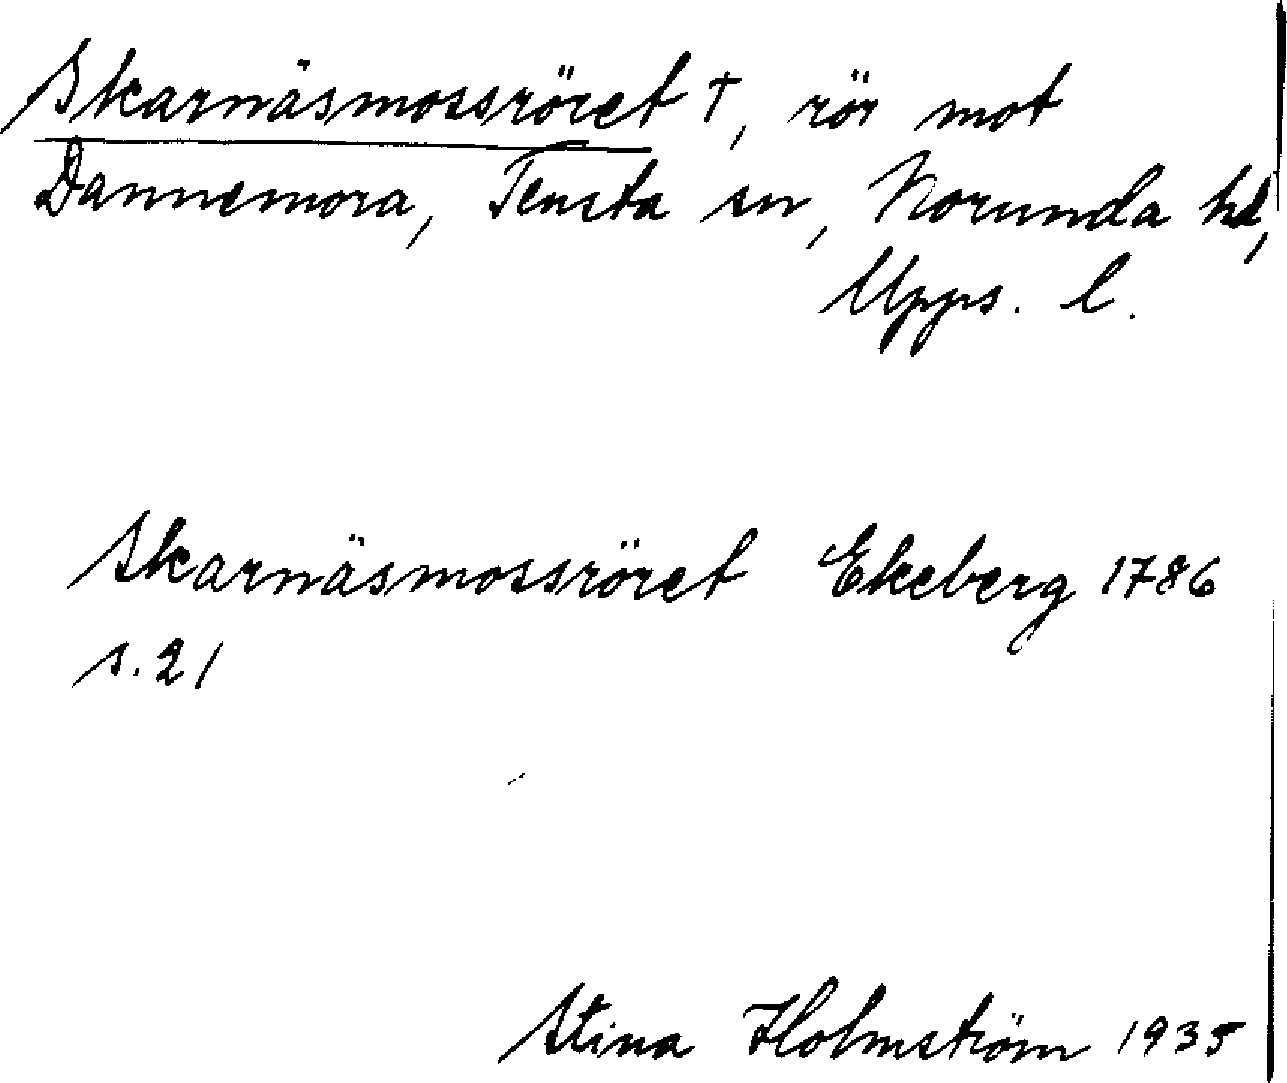 Skarnäsmossröret †, rör mot
Dannemora, Tensta sn, Norunda hd,
Upps. l.
Skarnäsmossröret Ekeberg 1786
s. 21
Stina Holmström 1935